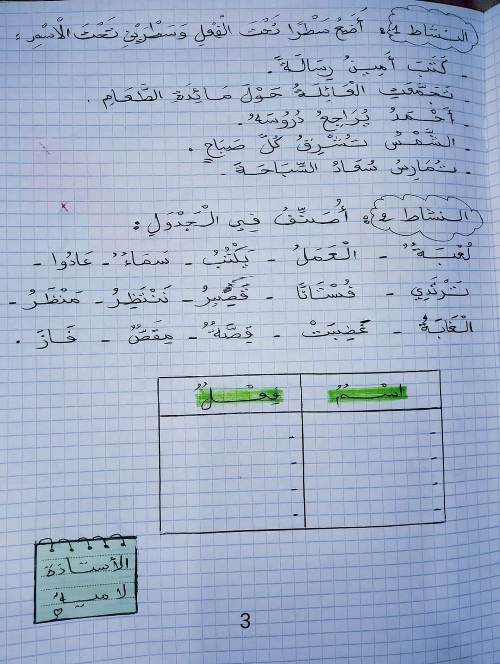 النشاط 1: أَضَعُ سَطْرًا تَحْتَ الْفِعْلِ وَسَطْرَيْنِ تَحْتَ الْاسْمِ:
- كَتَبَ أَمِينُ رِسَالَةً.
- تَجَمَّعَتِ الْعَائِلَةُ حَوْلَ مَائِدَةِ الطَّعَامِ.
- أَحْمَدُ يُرَاجِعُ دُرُوسَهُ.
- الشَّمْسُ تُشْرِقُ كُلَّ صَبَاحٍ.
- تُمَارِسُ سُعَادُ السِّبَاحَةَ.
النشاط 2: أُصَنِّفُ فِي الْجَدْوَلِ:
لُعْبَةٌ - الْعَمَلُ - يَكْتُبُ - سَمَاءٌ - عَادُوا -
تَرْتَدِي - فُسْتَانًا - قَصِيرُ - نَنْتَظِرُ - مَنْظَرُ -
الْغَابَةُ - غَضِبَتْ - قِصَّةٌ - مِقَصٌّ - فَازَ.
اسْمٌ فِعْلٌ
- -
- -
- -
- -
الأستاذة
لامية
3